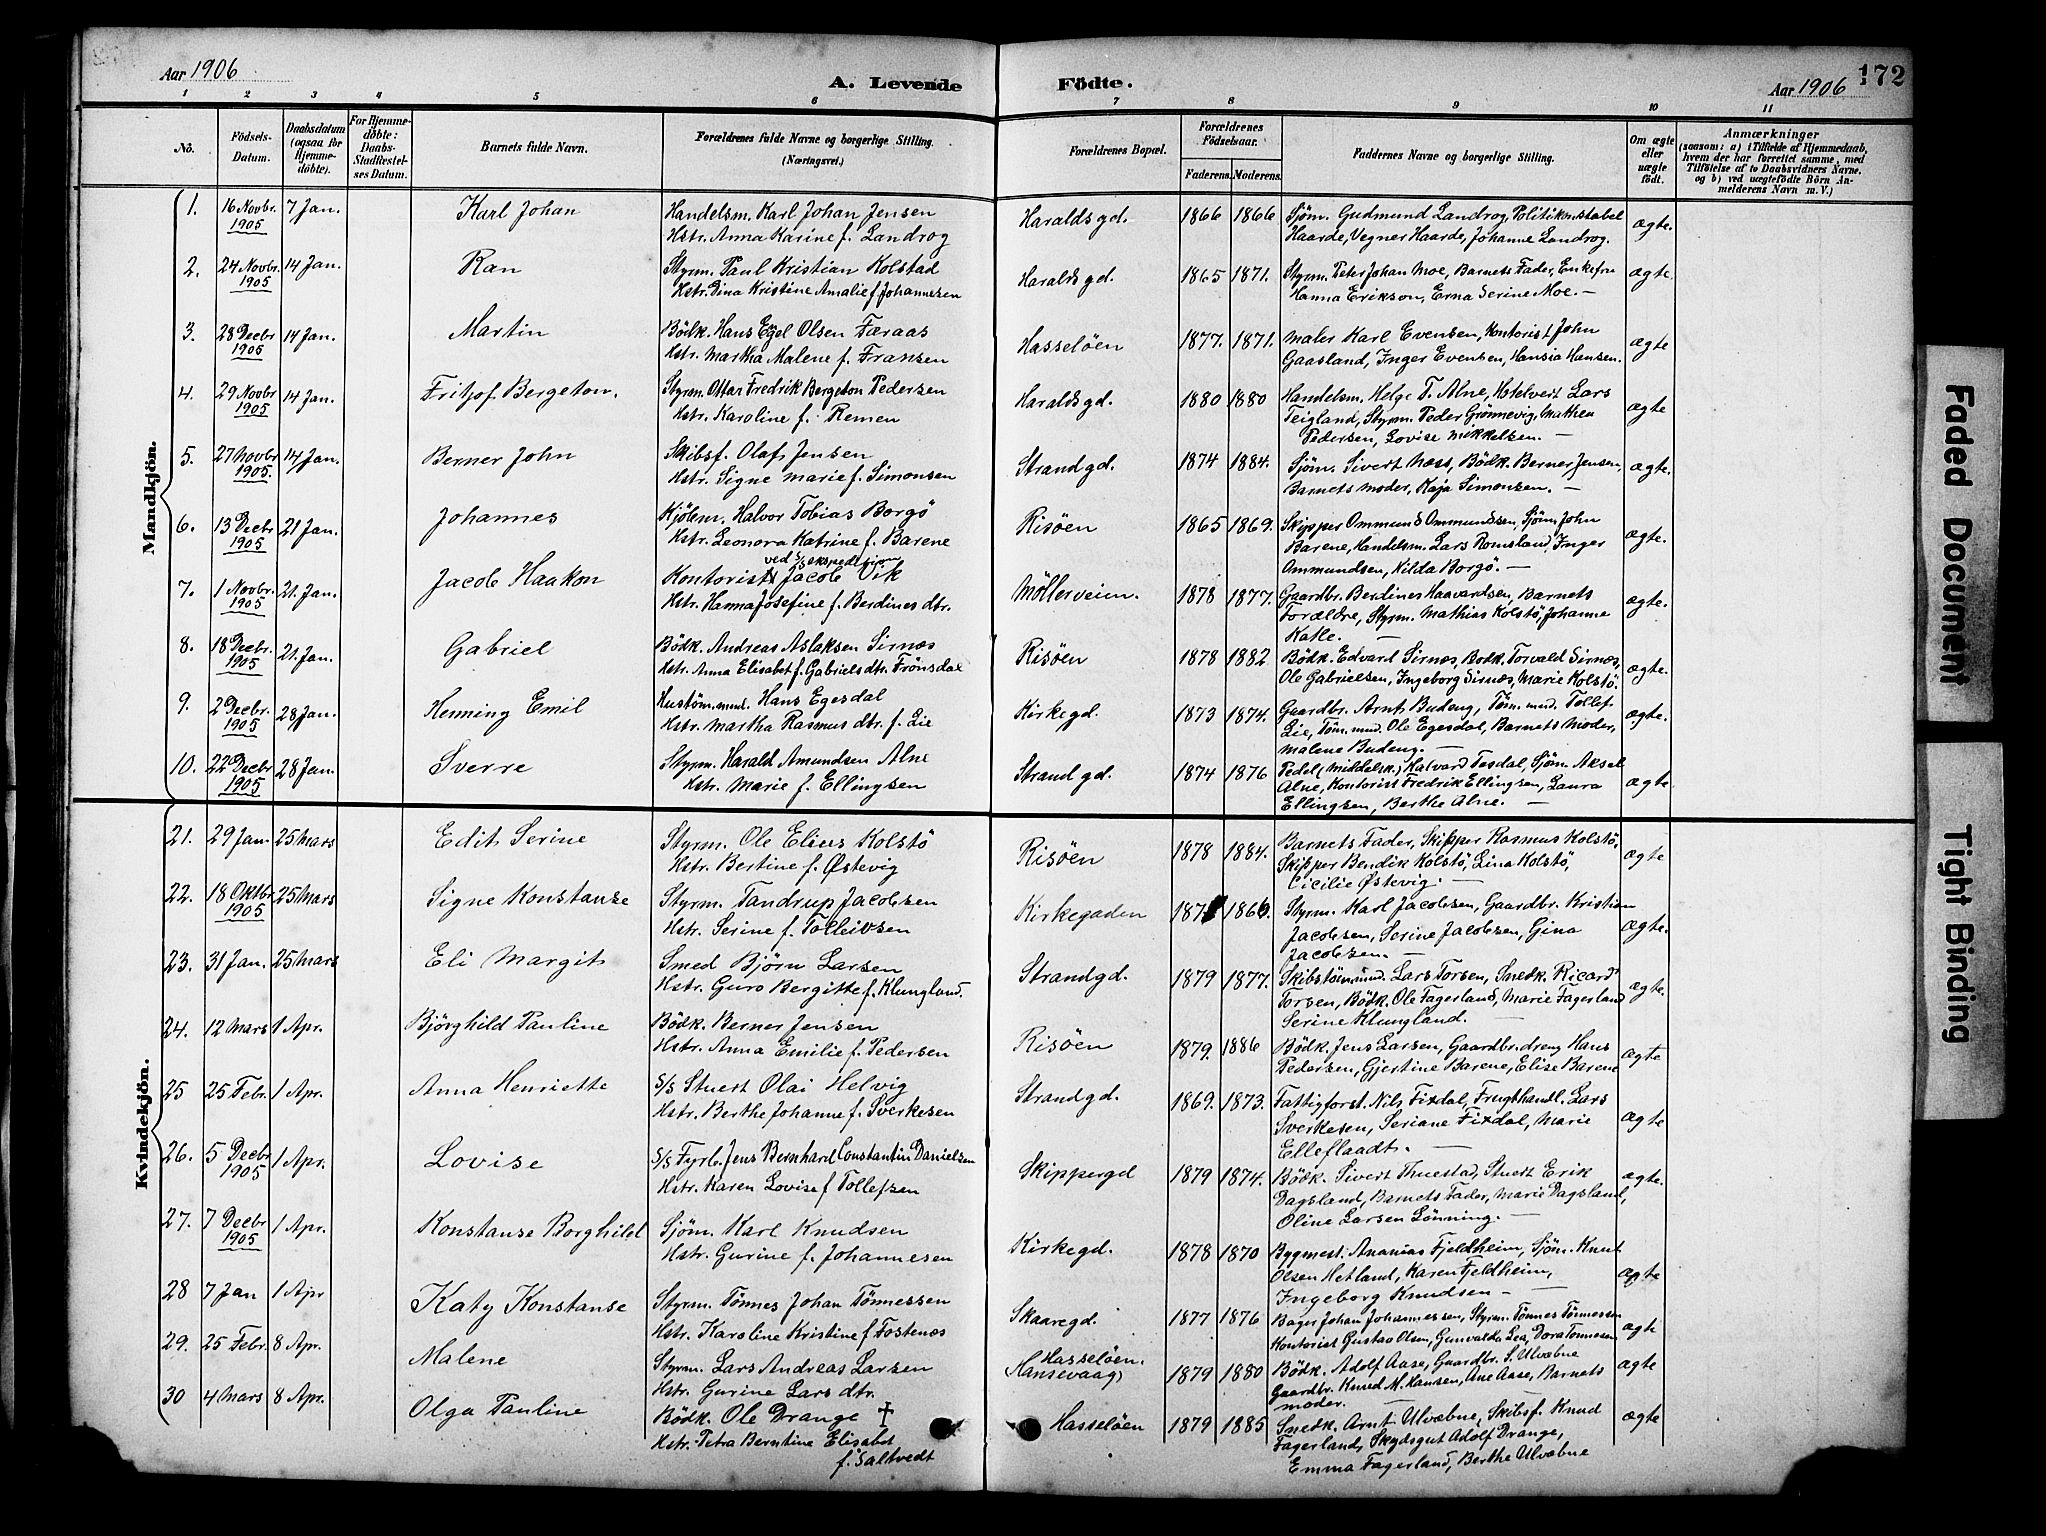 Aar 1906
A. Levende Födte.
Aar 1906
172
1 2 3 4 5 6 7 8 9 10 11
No.
Födsels-Datum.
Daabsdatum (ogsaa for Hjemmedöbte).
For Hjemmedöbte: Daabs-Stadfæstelses Datum.
Barnets fulde Navn.
Forældrenes fulde Navne og borgerlige Stilling. (Næringsvei.)
Forældrenes Bopæl.
Forældrenes Födselsaar.
Faderens. Moderens.
Faddernes Navne og borgerlige Stilling.
Om ægte eller uægte födt.
Anmærkninger (saasom: a) i Tilfælde af Hjemmedaab, hvem der har forrettet samme, med Tilföielse af to Daabsvidners Navne, og b) ved uægtefödte Börn Anmelderens Navn m. V.)
Mandkjön.
1. 16 Novbr. 1905 7 Jan. Karl Johan
Handelsm. Karl Johan Jensen
Hstr. Anna Karine f. Landrog
Haraldsgd. 1866 1866
Sjøm. Gudmund Landrog, Politikonstabel
Haarde, Vegner Haarde, Johanne Landrog. ægte.
2. 24 Novbr. 1905 14 Jan. Ran
Styrm. Paul Kristian Kolstad
Hstr. Dina Kristine Amalie f. Johannesen
Haraldsgd. 1865 1871.
Styrm. Peter Johan Moe, Barnets Fader, Enkefru
Hanna Erikson, Erna Serine Moe. — ægte.
3. 28 Decbr 1905 14 Jan. Martin
Bödk. Hans Egel Olsen Færaas
Hstr. Martha Malene f. Fransen
Hasseløen 1877. 1871.
Maler Karl Evensen, Kontorist John
Gaasland, Inger Evensen, Hansia Hansen. ægte
4. 29 Novbr 1905 14 Jan. Fritjof Bergeton.
Styrm. Ottar Fredrik Bergeton Pedersen
Hstr. Karoline f. Remen
Haraldsgd. 1880 1880
Handelsm. Helge T. Alne, Hotelvert Lars
Teigland, Styrm. Peder Grönnevig, Mathea
Pedersen, Lovise Mikkelsen. — ægte
5. 27 Novbr 1905. 14 Jan. Berner John
Skibsf. Olaf Jensen
Hstr. Signe Marie f. Simonsen
Strandgd. 1874 1884.
Sjöm. Sivert Næss, Bödk. Berner Jensen,
Barnets Moder, Kaja Simonsen. — ægte.
6. 13 Decbr 1905 21 Jan. Johannes
Kjölem. Halvor Tobias Borgö
Hstr. Leonora Katrine f. Barene
Risöen 1865 1869.
Skipper Ommund Ommundsen, Sjöm. John
Barene, Handelsm. Lars Romsland, Inger
Ommundsen, Hilda Borgö. — ægte.
7. 1 Novbr. 1905 21. Jan. Jacob Haakon
ved S/S ekspedition
Kontorist Jacob Vik
Hstr. Hanna Josefine f. Berdines dtr.
Möllerveien. 1878 1877.
Gaardbr. Berdines Haavardsen, Barnets
Forældre, Styrm. Mathias Kolstö, Johanne
Katle. — ægte.
8. 18 Decbr. 1905 21. Jan. Gabriel
Bödk. Andreas Aslaksen Sirnæs
Hstr. Anna Elisabet f. Gabrielsdtr. Frönsdal
Risöen 1878 1882
Bödk. Edvard Sirnæs, Bodk. Torvald Sirnæs,
Ole Gabrielsen, Ingeborg Sirnæs, Marie Kolstö. ægte.
9. 2 Decbr. 1905 28 Jan. Henning Emil
Hustöm.mnd. Hans Egesdal
Hstr. Martha Rasmusdtr. f. Lie
Kirkegd. 1873 1874.
Gaardbr. Arnt Budeng, Töm.mnd. Tollef
Lie, Töm.mnd. Ole Egesdal, Barnets Moder,
Malene Budeng. — ægte.
10. 22 Decbr 1905 28 Jan. Sverre
Styrm. Harald Amundsen Alne
Hstr. Marie f. Ellingsen
Strandgd. 1874 1876
Pedel (Middelsk.) Halvard Tesdal, Sjöm. Aksel
Alne, Kontorist Fredrik Ellingsen, Laura
Ellingsen, Berthe Alne. — ægte
Kvindekjön.
21. 29 Jan. 25 Mars Edit Serine
Styrm. Ole Elius Kolstö
Hstr. Bertine f. Østevig
Risöen 1878 1884.
Barnets Fader, Skipper Rasmus Kolstö,
Skipper Bendik Kolstö, Lina Kolstö,
Cicilie Østevig. — ægte
22. 18 Oktbr 1905 25 Mars Signe Konstanse
Styrm. Tandrup Jacobsen
Hstr. Serine f. Tolleivsen
Kirkegaden 1866.
Styrm. Karl Jacobsen, Gaardbr. Kristian
Jacobsen, Serine Jacobsen, Gina
Jacobsen. — ægte.
23. 31 Jan. 25 Mars Eli Margit
Smed Björn Larsen
Hstr. Guro Bergitte f. Klungland.
Strandgd. 1879 1877.
Skibstömmnd. Lars Torsen, Snedk. Ricard
Torsen, Bödk. Ole Fagerland, Marie Fagerland
Serine Klungland. ægte.
24. 12 Mars 1 Apr. Björghild Pauline
Bödk. Berner Jensen
Hstr. Anna Emilie f. Pedersen
Risöen 1879. 1886
Bödk. Jens Larsen, Gaardbr.dreng Hans
Pedersen, Gjertine Barene, Elise Barene ægte
25 25 Febr. 1 Apr. Anna Henriette
S/S Stuert Olai Helvig
Hstr. Berthe Johanne f. Sverkesen
Strandgd. 1869. 1873.
Fattigforst. Nils Fixdal, Frugthandl. Lars
Sverkesen, Seriane Fixdal, Marie
Elleflaadt. — ægte
26. 5 Decbr 1905 1 Apr. Lovise
S/S Fyrb. Jens Bernhard Constantin Danielsen
Hstr. Karen Lovise f Tollefsen
Skippergd 1879 1874.
Bödk. Sivert Thuestad, Stuert Erik
Dagsland, Barnets Fader, Marie Dagsland,
Oline Larsen Lönning. — ægte.
27. 7 Decbr 1905 1 Apr. Konstanse Borghild
Sjöm. Karl Knudsen
Hstr. Gurine f. Johannesen
Kirkegd. 1878 1870
Bygmest. Ananias Fjeldheim, Sjöm. Knut
Olsen Hetland, Karen Fjeldheim,
Ingeborg Knudsen — ægte
28 7 Jan 1 Apr Katy Konstanse
Styrm. Tönnes Johan Tönnessen
Hstr. Karoline Kristine f. Fostenæs
Skaaregd. 1877 1876
Bager Johan Johannessen, Styrm. Tönnes Tönnessen
Kontorist Gustav Olsen, Gunvalda Lea, Dora Tönnesen ægte
29. 25 Febr. 8 Apr. Malene
Styrm. Lars Andreas Larsen
Hstr. Gurine Larsdtr.
Hasselöen.
(Hansevaag) 1879 1880
Bödk. Adolf Aase, Gaardbr. S. Ulvæbne
Gaardbr. Knud M. Hansen, Ane Aase, Barnets
Moder. — ægte
30 4 Mars 8 Apr. Olga Pauline
Bödk. Ole Drange †
Hstr. Petra Berntine Elisabet
f. Saltvedt
Hasselöen 1879 1885
Snedk. Arnt Ulvæbne, Skibsf. Knud
Fagerland, Skydsgut Adolf Drange,
Emma Fagerland, Berthe Ulvæbne ægte
Faded Document
Tight Binding